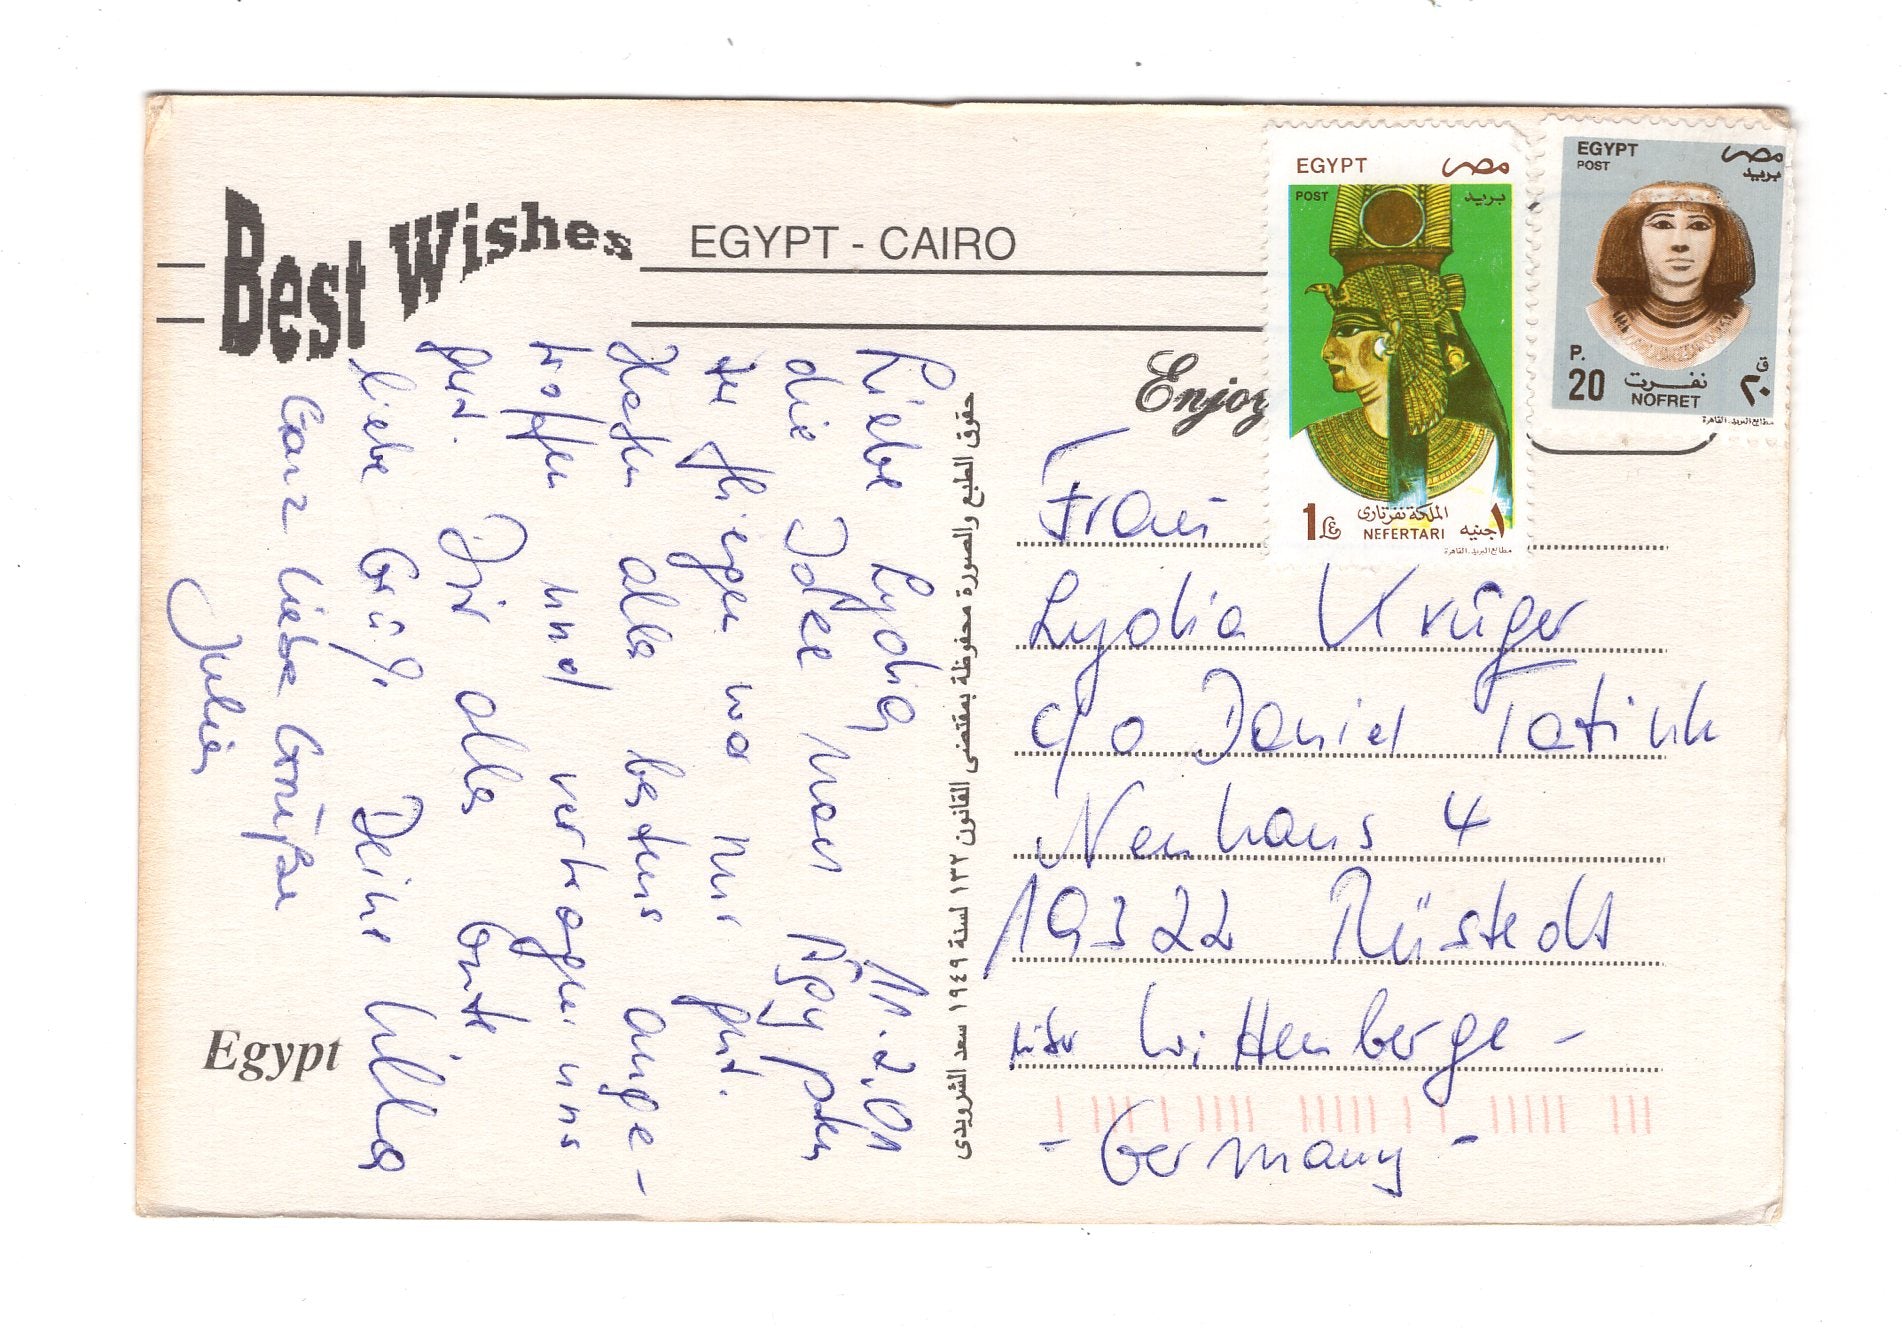 Best Wishes
EGYPT - CAIRO
Enjoy
EGYPT مصر
POST بريد
1 L.E. الملكة نفرتارى ١ جنيه
NEFERTARI
مطابع البريد. القاهرة
EGYPT مصر
POST بريد
P. ق
20 نفرت ٢٠
NOFRET
مطابع البريد. القاهرة
11.2.01
Liebe Lydia
die Idee nach Ägypten
zu fliegen war nur gut.
Haben alles bestens ange-
troffen und vertragen uns
gut. Dir alles Gute
liebe Grüße Deine Ulla
Ganz liebe Grüße
Julia
Egypt
حقوق الطبع والصورة محفوظة بمقتضى القانون ١٣٢ لسنة ١٩٤٩ سعد الشرويدى
Frau
Lydia Krüger
c/o Daniel
Neuhaus 4
19322 Rüstedt
über Wittenberge -
- Germany -